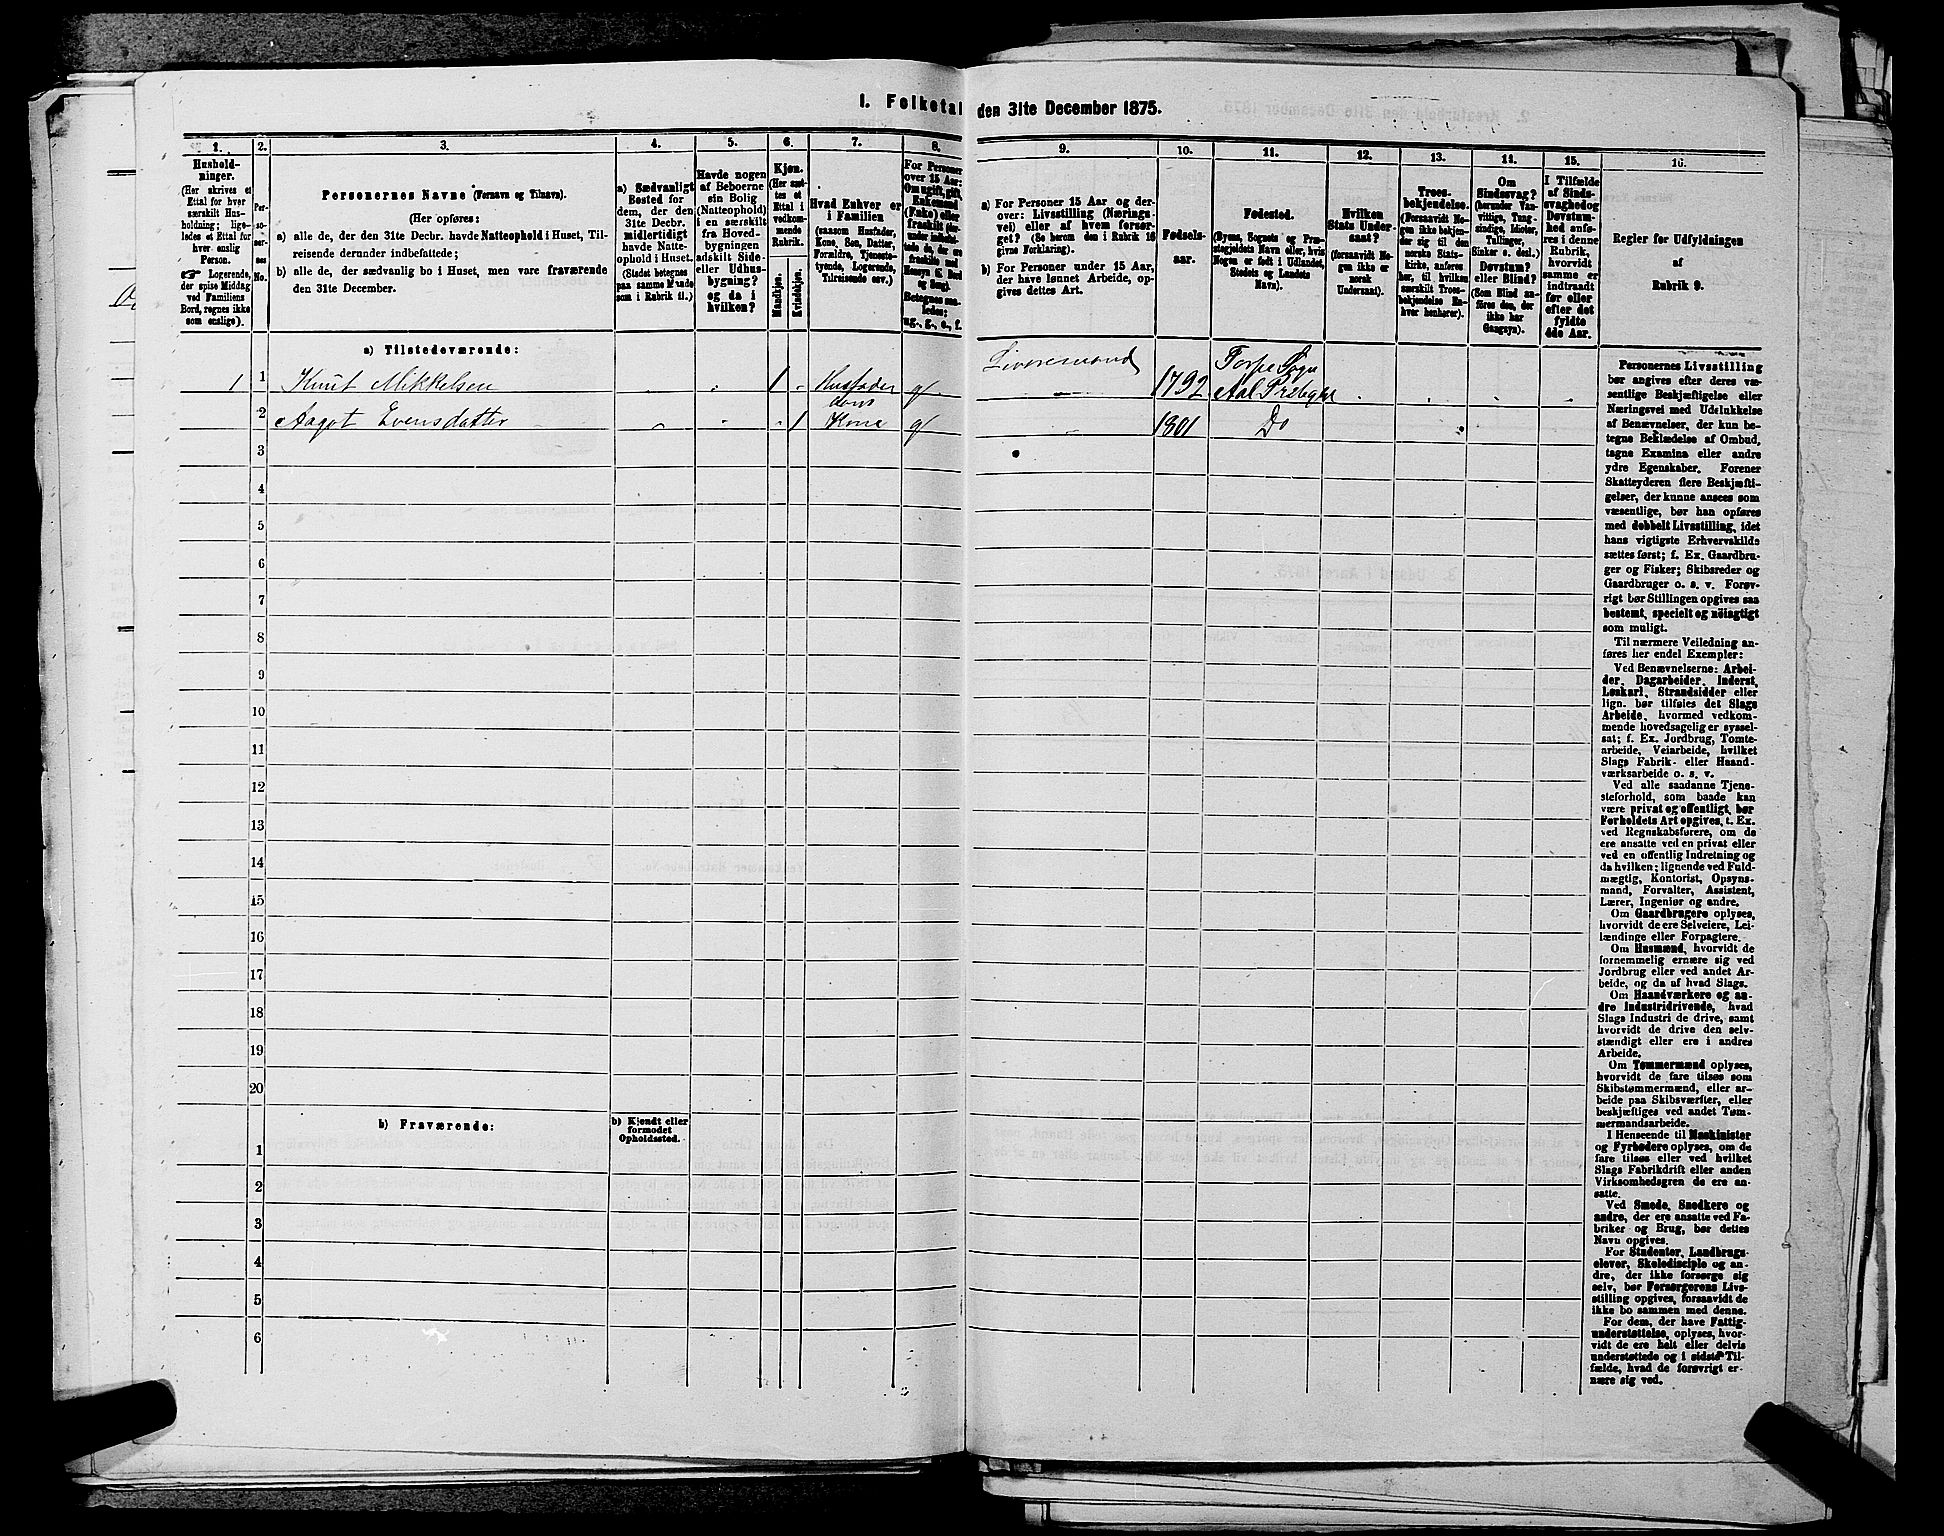 1. Folketal den 31te December 1875.
1. 2. 3. 4. 5. 6. 7. 8. 9. 10. 11. 12. 13. 14. 15. 16.
Hushold-
ninger.
(Her skrives et
Ettal for hver
særskilt Hus-
holdning; lige-
ledes et Ettal for
hver enslig
Person.
Logerende,
der spise Middag
ved Familiens
Bord, regnes ikke
som enslige).
Per-
so-
ner-
nes
No.
Personernes Navne (Fornavn og Tilnavn).
(Her opføres:
a) alle de, der den 31te Decbr. havde Natteophold i Huset, Til-
reisende derunder indbefattede;
b) alle de, der sædvanlig bo i Huset, men vare fraværende
den 31te December.
a) Sædvanligt
Bosted for
dem, der den
31te Decbr.
midlertidigt
havde Natte-
ophold i Huset.
(Stedet betegnes
paa samme Maade
som i Rubrik 11.)
Havde nogen
af Beboerne
sin Bolig
(Natteophold)
i en særskilt
fra Hoved-
bygningen
adskilt Side-
eller Udhus-
bygning?
og da i
hvilken?
Kjøn.
(Her sæt-
tes et
Ettal i
vedkom-
mende
Rubrik.
Mandkjøn.
Kvindekjøn.
Hvad Enhver er
i Familien
(saasom Husfader,
Kone, Søn, Datter,
Forældre, Tjeneste-
tyende, Logerende,
Tilreisende osv.)
For Personer
over 15 Aar:
Om ugift, gift,
Enkemand
(Enke) eller
fraskilt
Betegnes saa-
ledes:
ug., g., e., f.
a) For Personer 15 Aar og der-
over: Livsstilling (Nærings-
vei) eller af hvem forsør-
get? (Se herom den i Rubrik 16
givne Forklaring).
b) For Personer under 15 Aar,
der have lønnet Arbeide, op-
gives dettes Art.
Fødsels-
aar.
Fødested.
(Byens, Sognets og Præ-
stegjeldets Navn eller, hvis
Nogen er født i Udlandet,
Stedets og Landets
Navn).
Hvilken
Stats Under-
saat?
(forsaavidt No-
gen ikke er
norsk
Undersaat).
Troes-
bekjendelse.
(Forsaavidt No-
gen ikke bekjen-
der sig til den
norske Stats-
kirke, anføres
her, til hvilken
særskilt Troes-
bekjendelse En-
hver henhører).
Om
Sindssvag?
(herunder Van-
vittige, Tung-
sindige, Idioter,
Tullinger,
Sinker o. desl.)
Døvstum?
eller Blind?
(Som Blind an-
føres den, der
ikke har
Gangsyn).
I Tilfælde
af Sinds-
svaghed og
Døvstum-
hed anfø-
res i denne
Rubrik,
hvorvidt
samme er
indtraadt
før eller
efter det
fyldte
4de Aar.
Regler for Udfyldningen
af
Rubrik 9.
a) Tilstedeværende:
1 1 Knut Mikkelsen 1 Husfader g 1792 Torpe Sogn
Aal Prstgjld
2 Aagot Evensdatter 1 Kone g 1801 Do
3
4
5
6
7
8
9
10
11
12
13
14
15
16
17
18
19
20
b) Fraværende:
b) Kjendt eller
formodet
Opholdssted.
1
2
3
4
5
6
Personernes Livsstilling
bør angives efter deres væ-
sentlige Beskjæftigelse eller
Næringsvei med Udelukkelse
af Benævnelser, der kun be-
tegne Beklædelse af Ombud,
tagne Examina eller andre
ydre Egenskaber. Forener
Skatteyderen flere Beskjæfti-
gelser, der kunne ansees som
væsentlige, bør han opføres
med dobbelt Livsstilling, idet
hans vigtigste Erhvervskilde
sættes først; f. Ex. Gaardbru-
ger og Fisker; Skibsreder og
Gaardbruger o. s. v. Forøv-
rigt bør Stillingen opgives saa
bestemt, specielt og nøiagtigt
som muligt.
Til nærmere Veiledning an-
føres her endel Exempler:
Ved Benævnelserne: Arbei-
der, Dagarbeider, Inderst,
Løskarl, Strandsidder eller
lign. bør tilføies det Slags
Arbeide, hvormed vedkom-
mende hovedsagelig er syssel-
sat; f. Ex. Jordbrug, Tomte-
arbeide, Veiarbeide, hvilket
Slags Fabrik- eller Haand-
værksarbeide o. s. v.
Ved alle saadanne Tjene-
steforhold, som baade kan
være privat og offentligt, bør
Forholdets Art opgives, t. Ex.
ved Regnskabsførere, om de
ere ansatte ved en privat eller
ved en offentlig Indretning og
da hvilken; lignende ved Fuld-
mægtig, Kontorist, Opsyns-
mand, Forvalter, Assistent,
Lærer, Ingeniør og andre.
Om Gaardbrugere oplyses,
hvorvidt de ere Selveiere, Lei-
lændinge eller Forpagtere.
Om Husmænd, hvorvidt de
fornemmelig ernære sig ved
Jordbrug eller ved andet Ar-
beide, og da af hvad Slags.
Om Haandværkere og an-
dre Industridrivende, hvad
Slags Industri de drive, samt
hvorvidt de drive den selv-
stændigt eller ere i andres
Arbeide.
Om Tømmermænd oplyses,
hvorvidt de fare tilsøs som
Skibstømmermænd, eller ar-
beide paa Skibsværfter, eller
beskjæftiges ved andet Tøm-
mermandsarbeide.
I Henseende til Maskinister
og Fyrbødere oplyses, om de
fare tilsøs eller ved hvilket
Slags Fabrikdrift eller anden
Virksomhedsgren de ere an-
satte.
Ved Smede, Snedkere og
andre, der ere ansatte ved Fa-
briker og Brug, bør dettes
Navn opgives.
For Studenter, Landbrugs-
elever, Skoledisciple og an-
dre, der ikke forsørge sig
selv, bør Forsørgerens Livs-
stilling opgives, forsaavidt de
ikke bo sammen med denne.
For dem, der have Fattig-
understøttelse, oplyses, hvor-
vidt de ere helt eller delvis
understøttede og i sidste Til-
fælde, hvad de forøvrigt er-
nære sig ved.